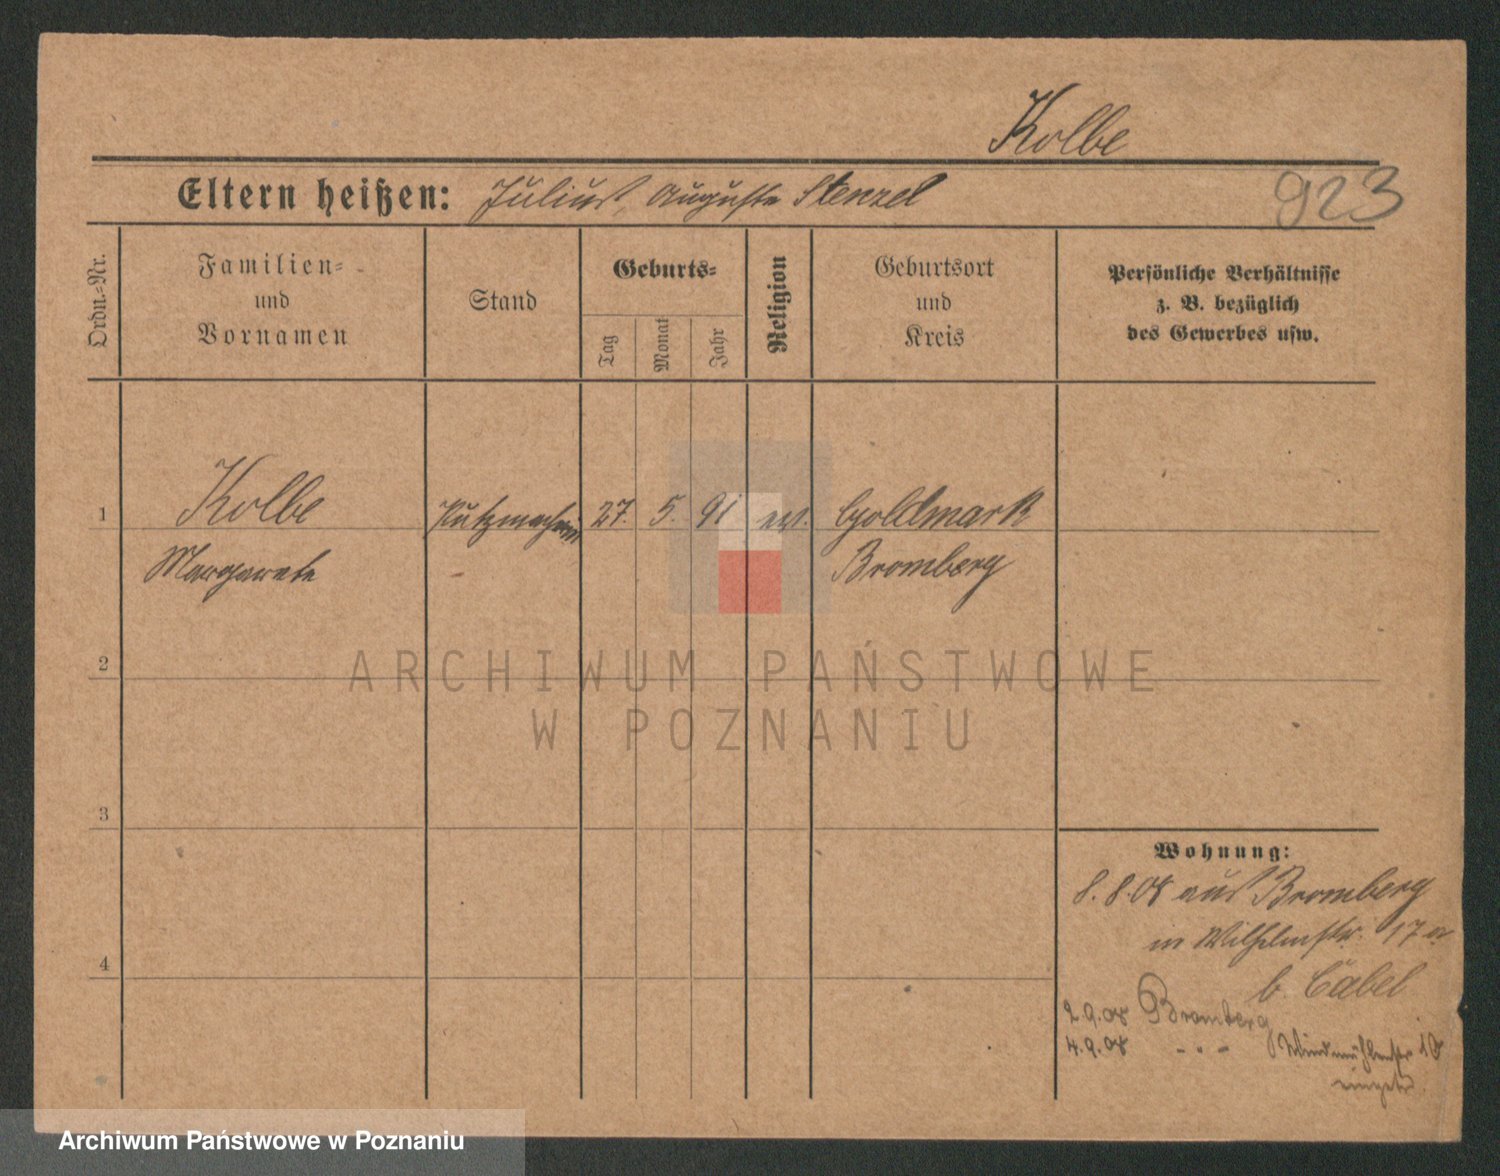 Kolbe
Eltern heißen: Julius, Auguste Stenzel
923
Ordn.-Nr.
Familien-
und
Vornamen
Stand
Geburts-
Tag
Monat
Jahr
Religion
Geburtsort
und
Kreis
Persönliche Verhältnisse
z. B. bezüglich
des Gewerbes usw.
1
Kolbe
Margarete
Putzmacherin
27. 5. 91
ev.
Goldmark
Bromberg
2
ARCHIWUM PAŃSTWOWE
W POZNANIU
3
4
Wohnung:
8.8.08 aus Bromberg
in Wilhelmstr. 17a
b. Cabel
2.9.08 Bromberg
4.9.08 - - - Windmühlenstr 10
Archiwum Państwowe w Poznaniu